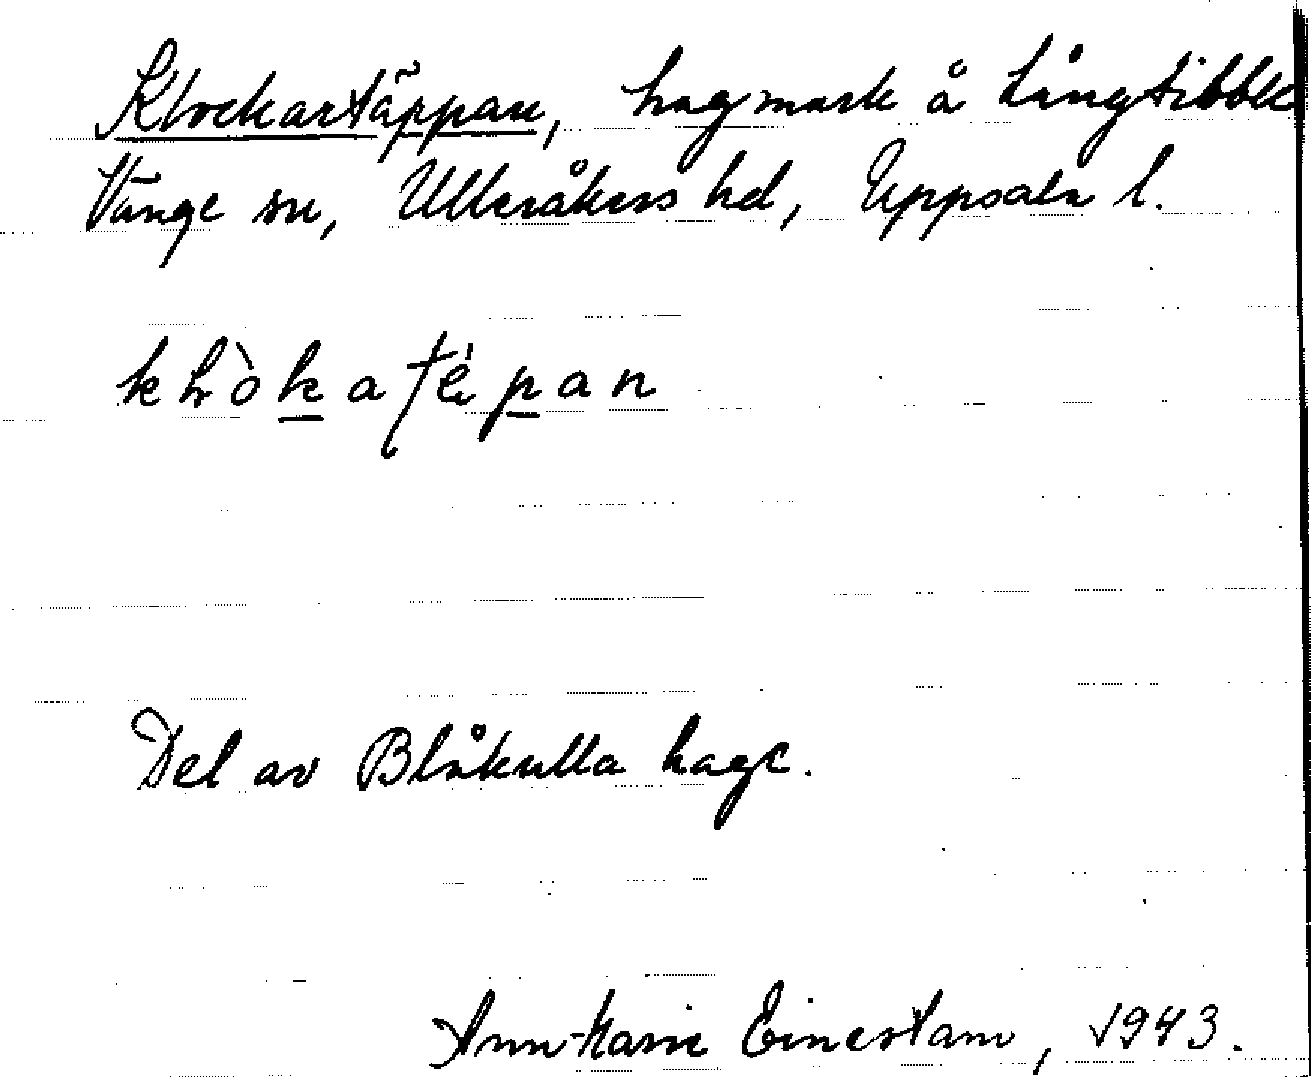 Klockartäppan, hagmark å Långtibble
Vänge sn, Ulleråkers hd, Uppsala l.
Del av Blåkulla hage.
Ann-Marie Einerstam, 1943.